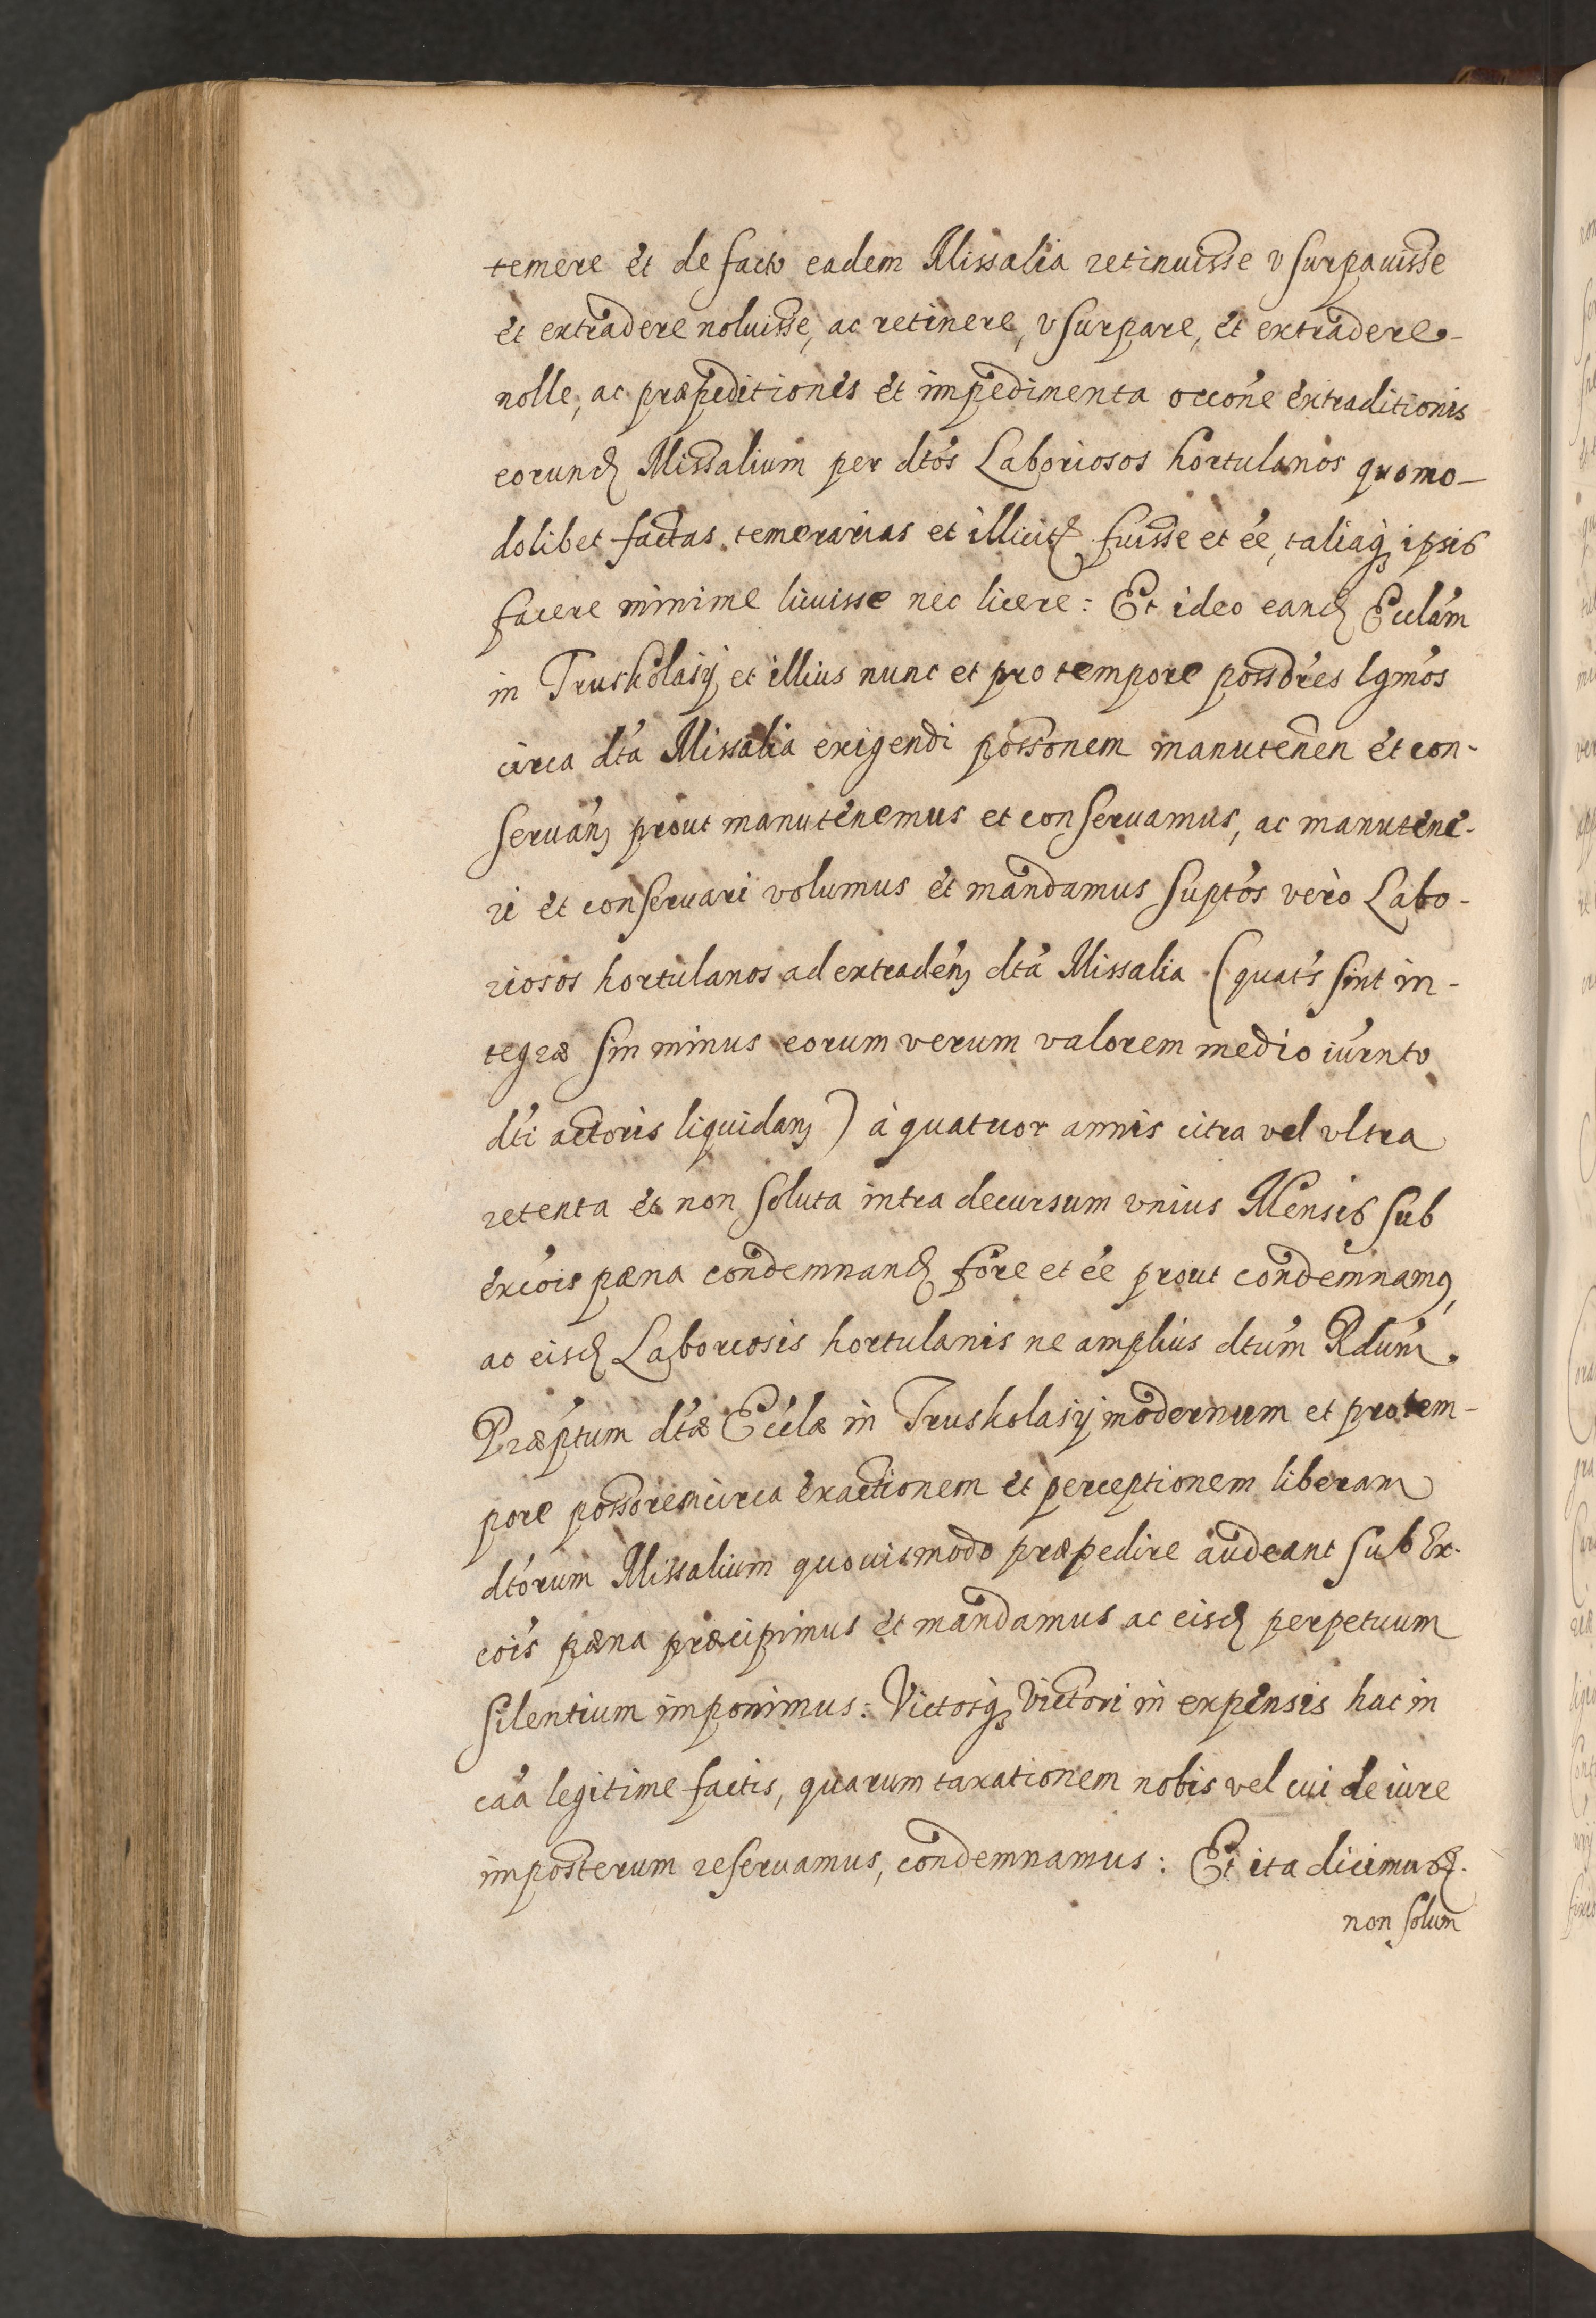 temere et de facto eadem Missalia retinuisse vsurpauisse
et extradere noluisse, ac retinere, vsurpare, et extradere
nolle, ac præpeditiones et impedimenta occone extraditionis
eorund Missalium per dtos Laboriosos hortulanos quomo-
dolibet factas temerarias et illicit fuisse et ee, taliaq ipsis
facere minime licuisse nec licere: Et ideo eand Ecclam
in Truskolasÿ et illius nunc et pro tempore possores lgmos
circa dta Missalia exigendi possonem manutenen et con-
seruan prout manutenemus et conseruamus, ac manutene-
ri et conseruari volumus et mandamus suptos verò Labo-
riosos hortulanos ad extraden dta Missalia (quats sint in-
tegræ sin minus eorum verum valorem medio iurnto
dti actoris liquidan) à quatuor annis citra vel vltra
retenta et non soluta intra decursum vnius Mensis sub
excois pæna condemnand fore et ee prout condemnamq,
ac eisd Laboriosis hortulanis ne amplius dtum Rdum.
Præptum dtæ Ecclæ in Truskolasÿ modernum et pro tem-
pore possorem circa exactionem et perceptionem liberam
dtorum Missalium quouismodo præpedire audeant sub Ex-
cois pæna præcipimus et mandamus ac eisd perpetuum
silentium imponimus: Victosq Victori in expensis hac in
caa legitime factis, quarum taxationem nobis vel cui de iure
imposterum reseruamus, condemnamus: Et ita dicimus
non solum